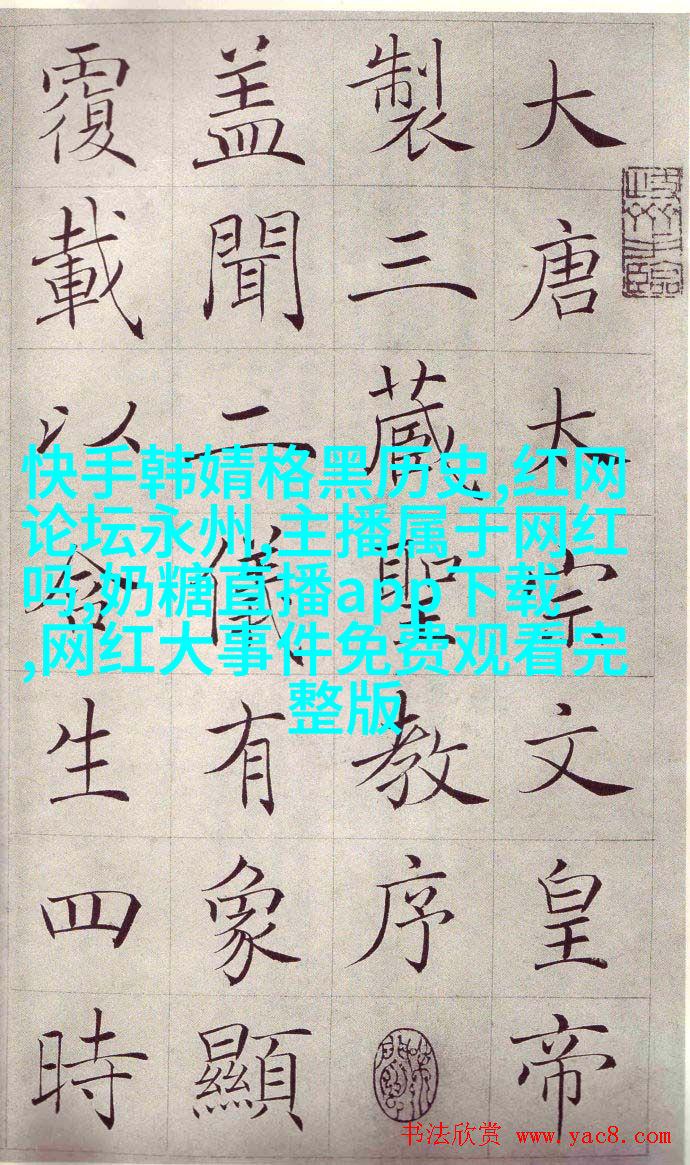 大唐太宗文皇帝
製三蔵聖教序
盖聞二儀有象顯
覆載以含生四時
快手韩婧格黑历史,红网
论坛永州,主播属于网红
吗,奶糖直播app下载
,网红大事件免费观看完
整版
书法欣赏 www.yac8.com